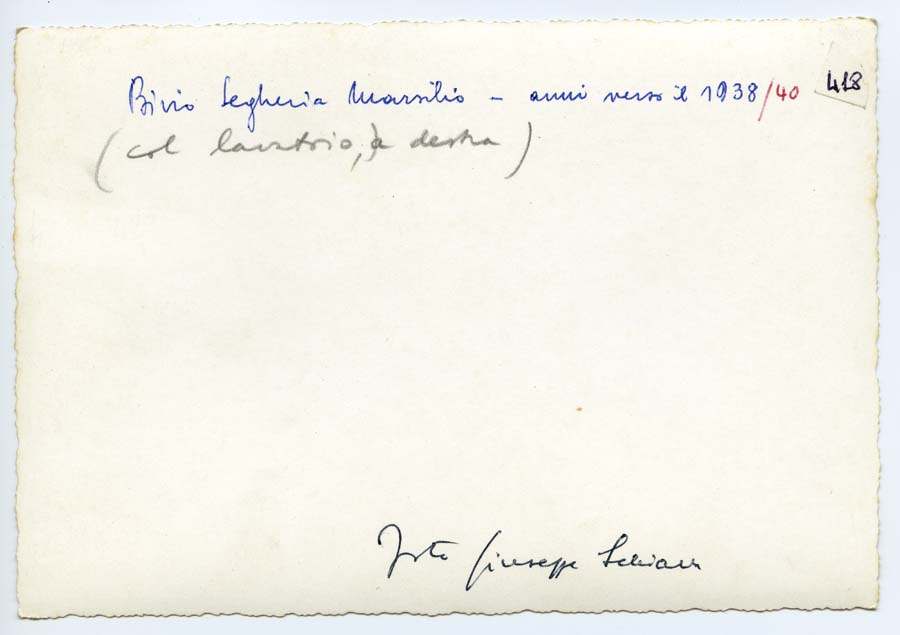 Bivio Segheria Marsilio - anni verso il 1938/40
418
(col lavatoio, a destra)
Foto Giuseppe Schiava